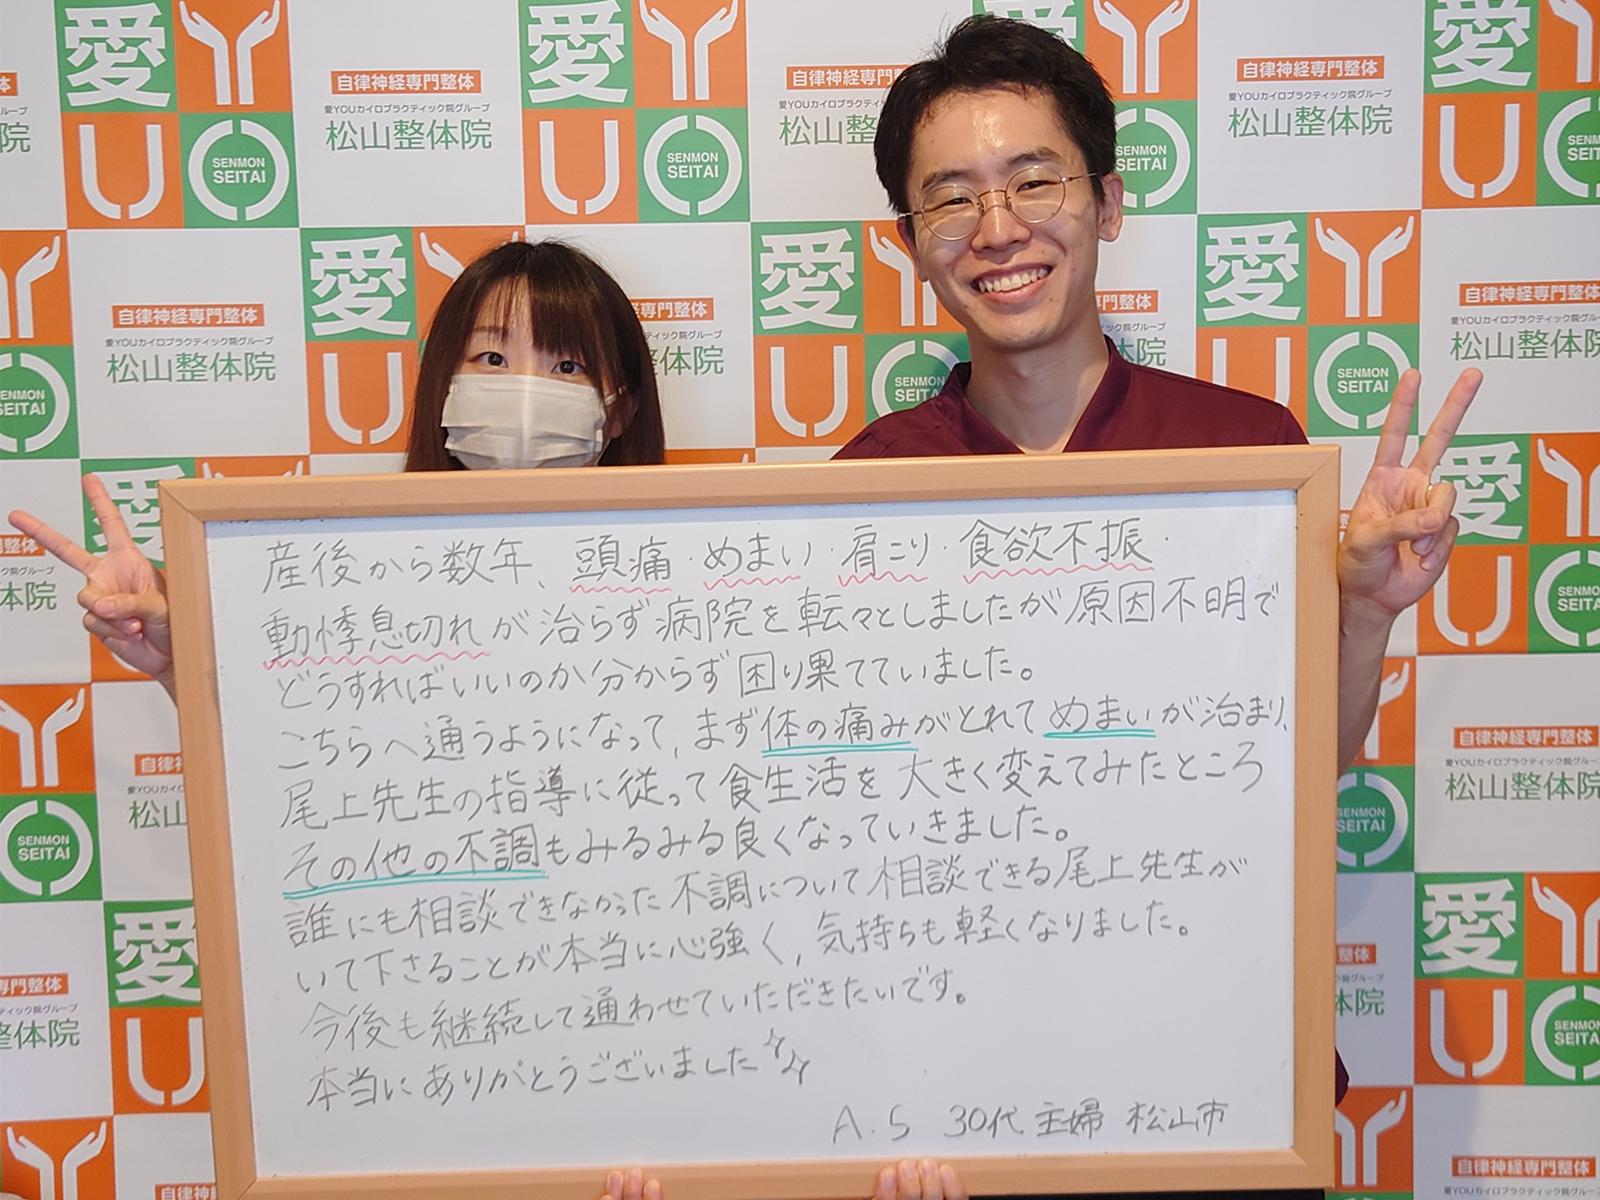 愛
自律神経専門整体
愛YOUカイロプラクティック院グループ
松山整体院
SENMON
SEITAI
産後から数年、頭痛・めまい・肩こり・食欲不振・
動悸息切れが治らず病院を転々としましたが原因不明で
どうすればいいのか分からず困り果てていました。
こちらへ通うようになって、まず体の痛みがとれてめまいが治まり、
尾上先生の指導に従って食生活を大きく変えてみたところ
その他の不調もみるみる良くなっていきました。
誰にも相談できなかった不調について相談できる尾上先生が
いて下さることが本当に心強く、気持ちも軽くなりました。
今後も継続して通わせていただきたいです。
本当にありがとうございました
A.S 30代 主婦 松山市